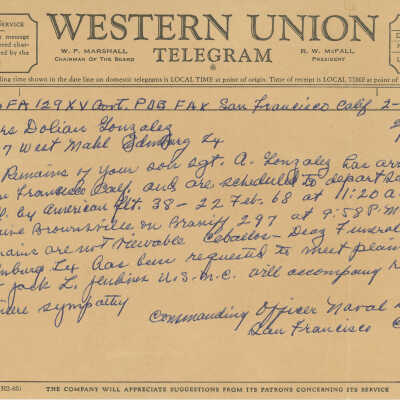 SERVICE
WESTERN UNION
W. P. MARSHALL
CHAIRMAN OF THE BOARD
TELEGRAM
R. W. McFALL
PRESIDENT
ling time shown in the date line on domestic telegrams is LOCAL TIME at point of origin. Time of receipt is LOCAL TIME at point of desti
FA 129 XV Govt. PDB FAX San Francisco Calif 2-
rs Dolian Gonzalez
7 West Mahl Edinburg Tx
Remains of your son Sgt. A. Gonzalez has arr
n Francisco Calif. and are scheduled to depart Sa
by American flt 38 - 22 Feb. 68 at 11:20 a
Brownsville on Braniff 297 at 9:58 P.M
ains are not viewable Ceballos - Diaz Funeral
nburg Tx has been requested to meet plan
Jack L. Jenkins U.S.M.C. will accompany r
ere sympathy
Commanding Officer Naval
San Francisco C
THE COMPANY WILL APPRECIATE SUGGESTIONS FROM ITS PATRONS CONCERNING ITS SERVICE